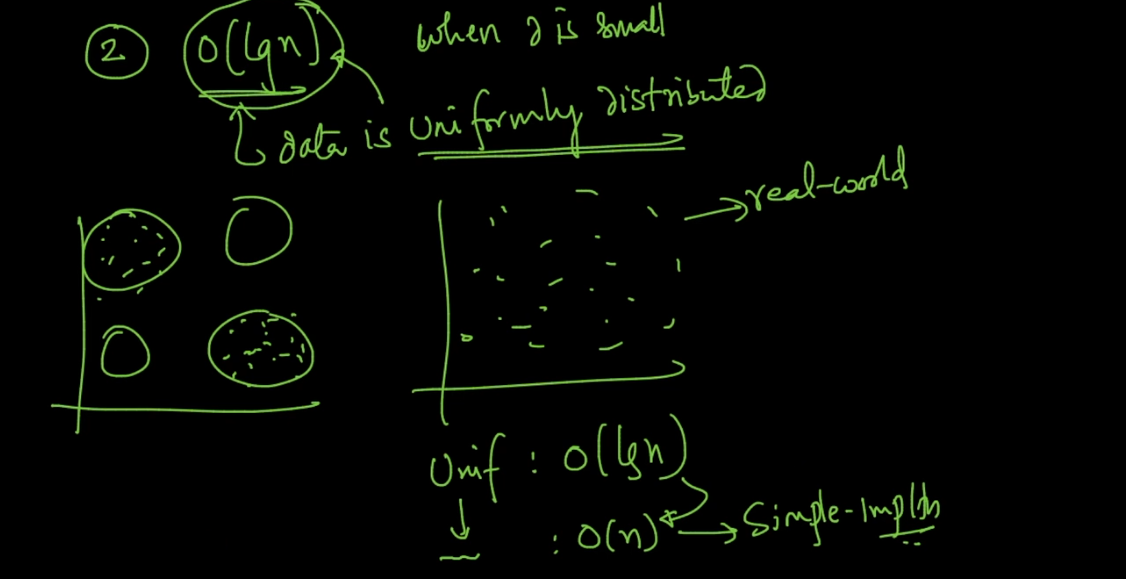 2 O(lg n) when d is small
data is uniformly distributed
real-world
Unif : O(lg n)
: O(n) → Simple-Impln